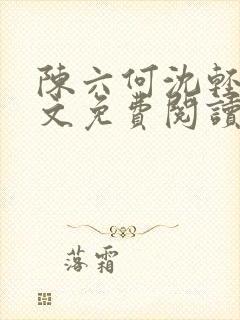 陳六何沈輕
文免費閱讀
落霜